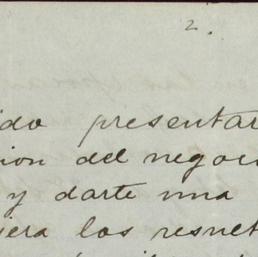 2.
ido presentar
cion del negoci
y darte una
iera los resuel